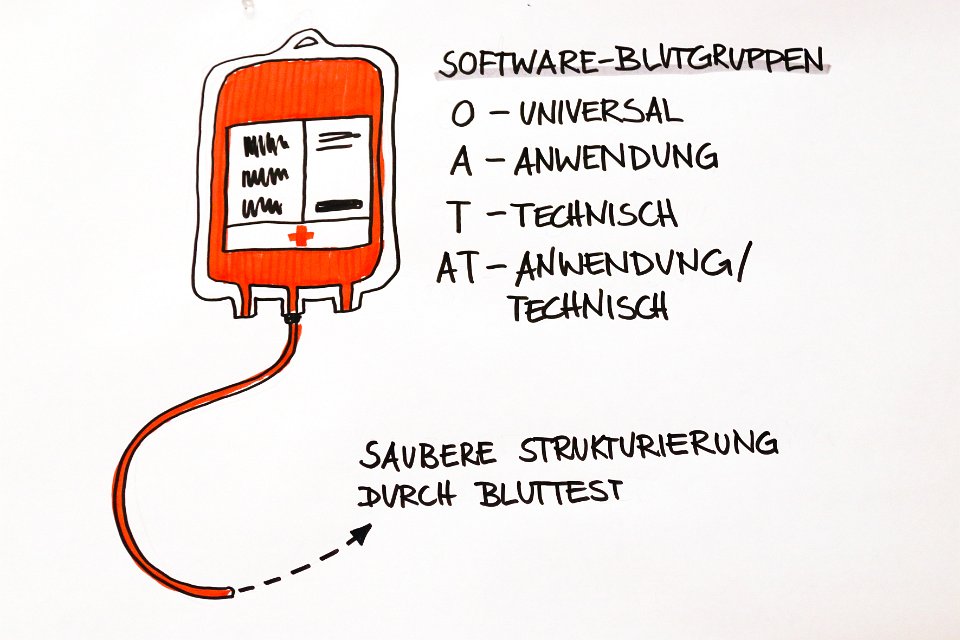 SOFTWARE-BLUTGRUPPEN
O – UNIVERSAL
A – ANWENDUNG
T – TECHNISCH
AT – ANWENDUNG/
TECHNISCH
SAUBERE STRUKTURIERUNG
DURCH BLUTTEST